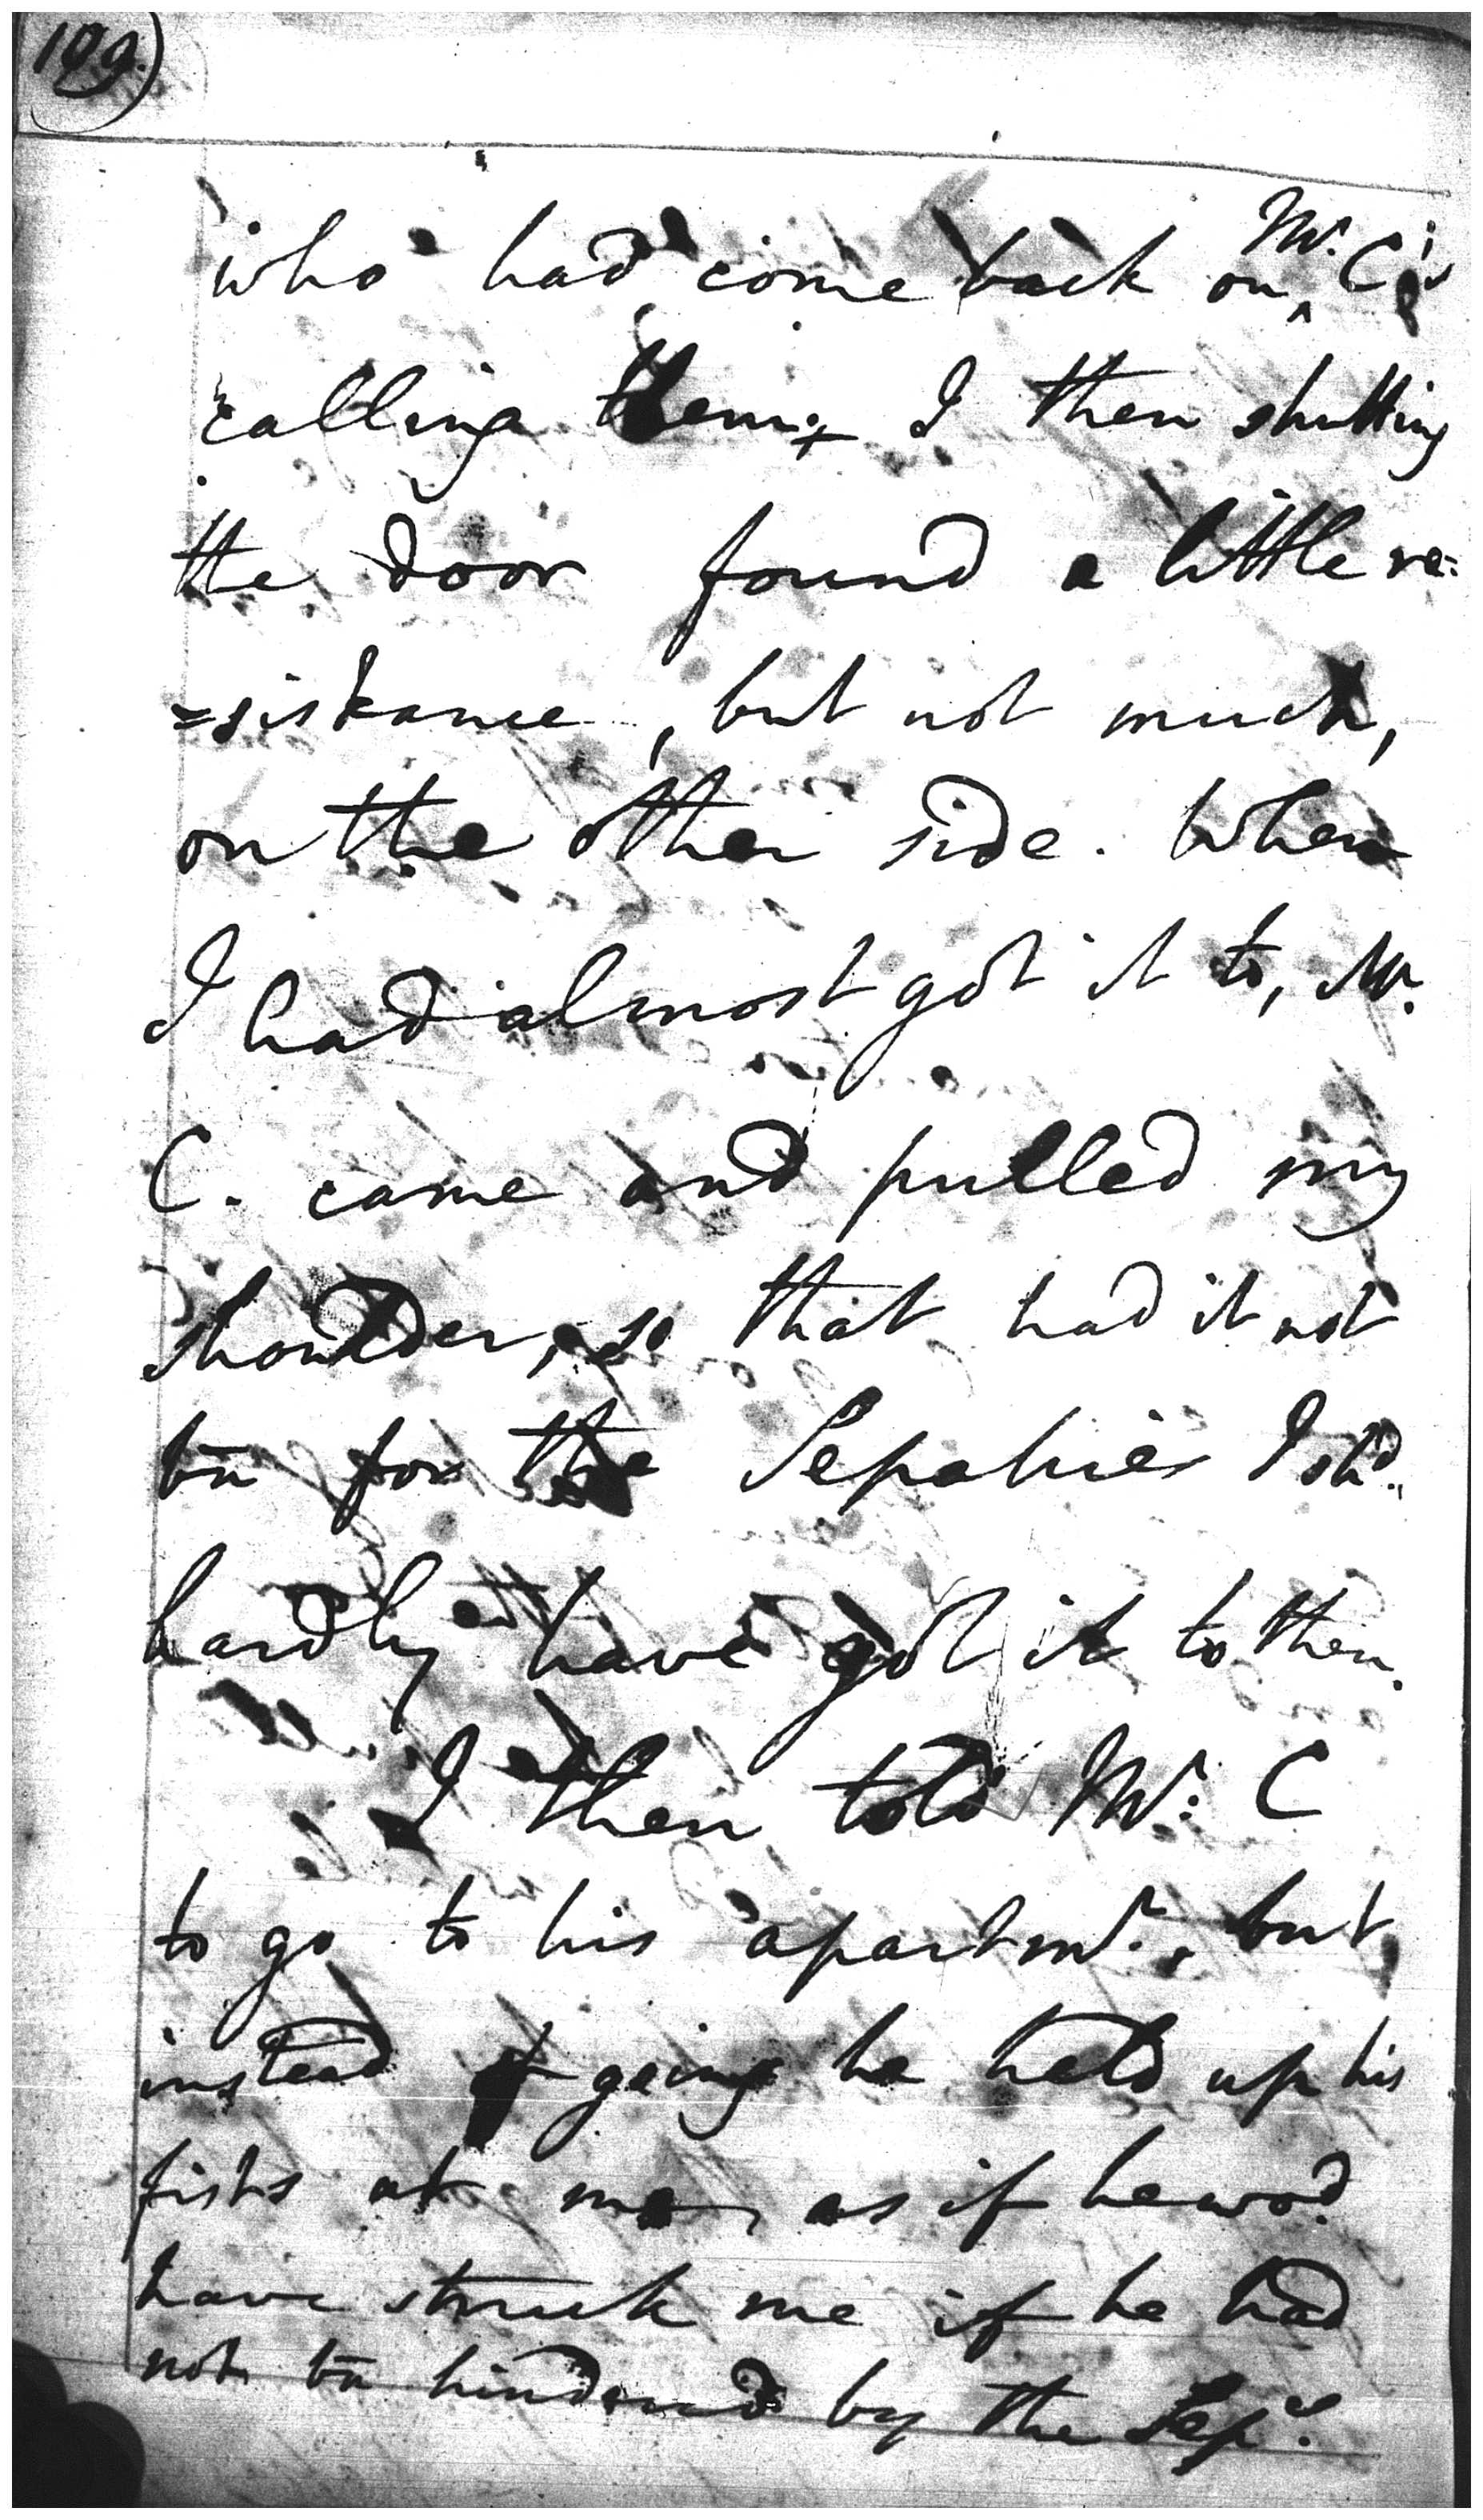 199.
who had come back on ^Mr. C's
calling them; I then shutting
the door found a little re=
=sistance, but not much,
on the other side. When
I had almost got it to, Mr.
C. came and pulled my
shoulder, so that had it not
bn for the Sepahies I shd.
hardly have got it to then.
I then told Mr: C
to go to his apartmt., but
instead of going he held up his
fists at me, as if he wod.
have struck me if he had
not bn hindered by the Seps.